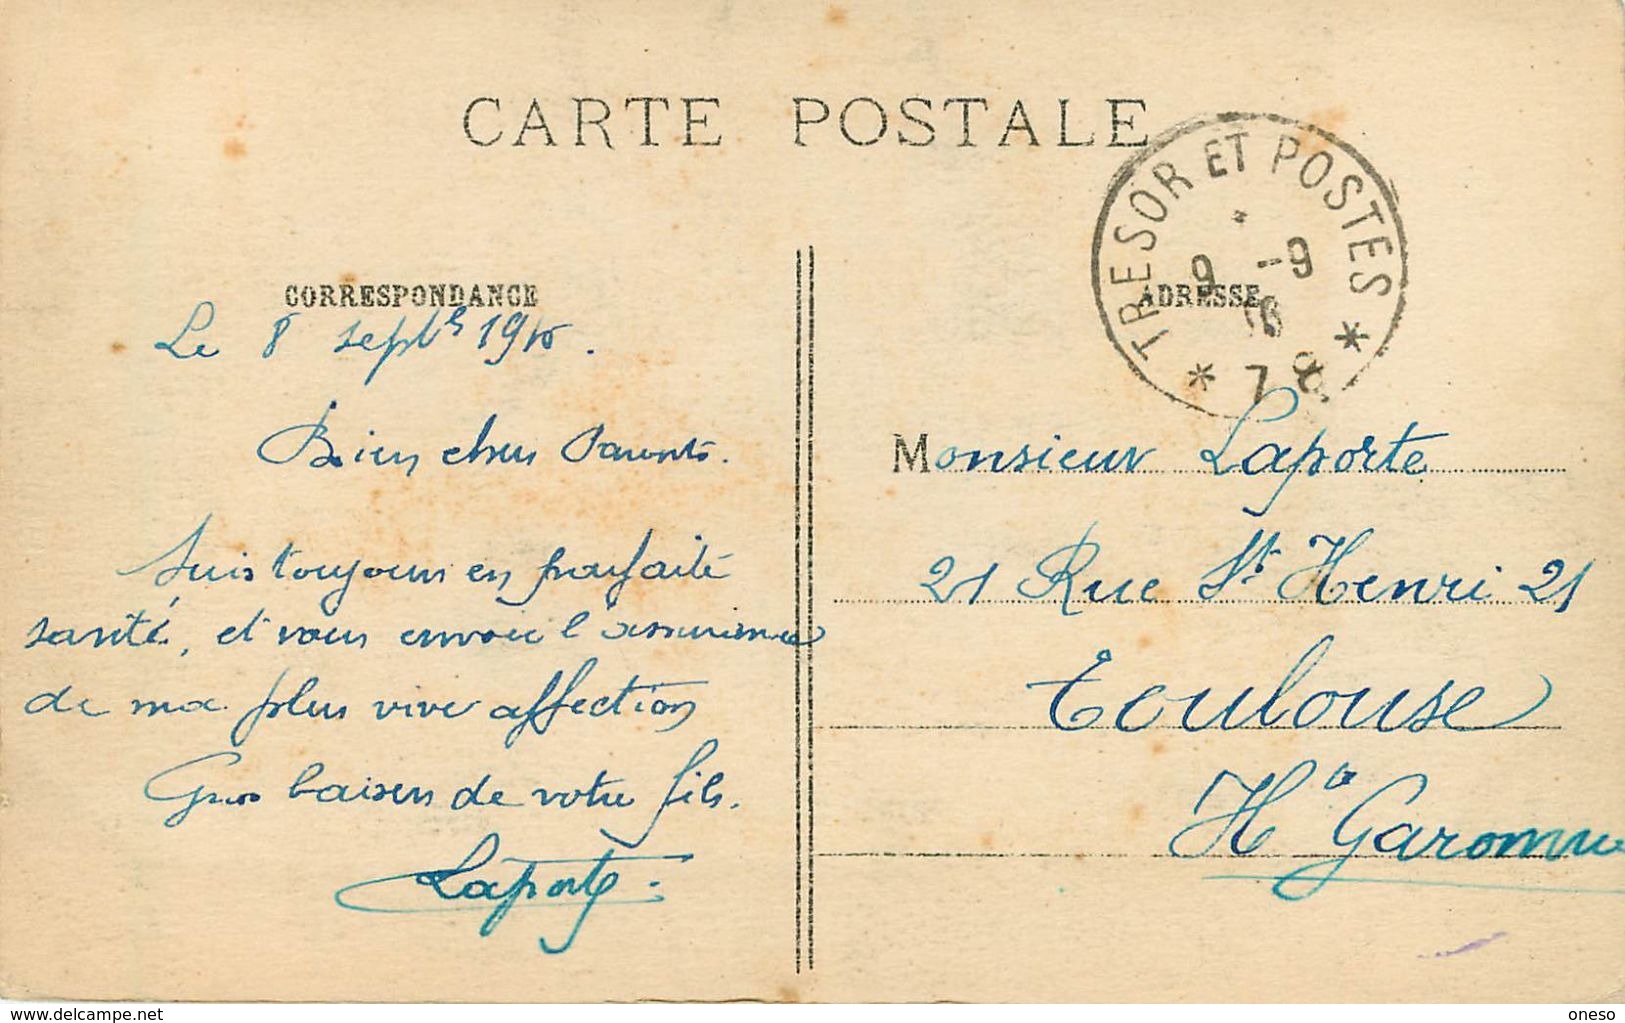 CARTE POSTALE
TRESOR ET POSTES
9 -9
16
* 7 *
CORRESPONDANCE
ADRESSE
Le 8 septbre 1916.
Bien chers Parents.
Suis toujours en parfaite
santé, et vous envoie l'assurance
de ma plus vive affection
Gros baisers de votre fils.
Laporte
Monsieur Laporte
21 Rue St Henri 21
Toulouse
Hte Garonne
delcampe.net
oneso